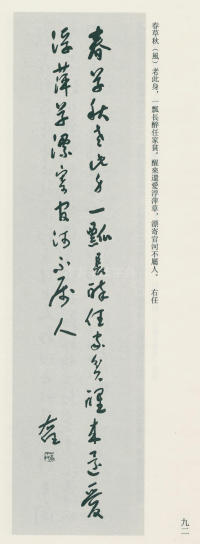 春草秋（風）老此身，一瓢長醉任家貧，醒來還愛浮萍草，漂寄官河不屬人。 右任
春草秋老此身一瓢長醉任家貧醒來還愛
浮萍草漂寄官河不屬人
右任
九二